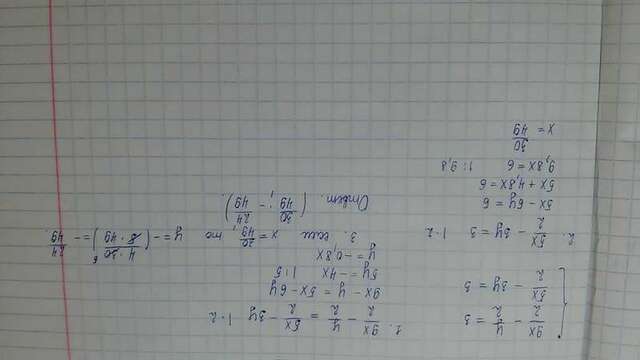 9x/2 - y/2 = 3
5x/2 - 3y = 3
1. 9x/2 - y/2 = 5x/2 - 3y | ·2
9x - y = 5x - 6y
5y = -4x | :5
y = -0,8x
2. 5x/2 - 3y = 3 | ·2
5x - 6y = 6
5x + 4,8x = 6
9,8x = 6 | : 9,8
x = 30/49
3. если x = 30/49, то y = -(4·30/8·49) = -24/49.
Ответ. (30/49; -24/49).